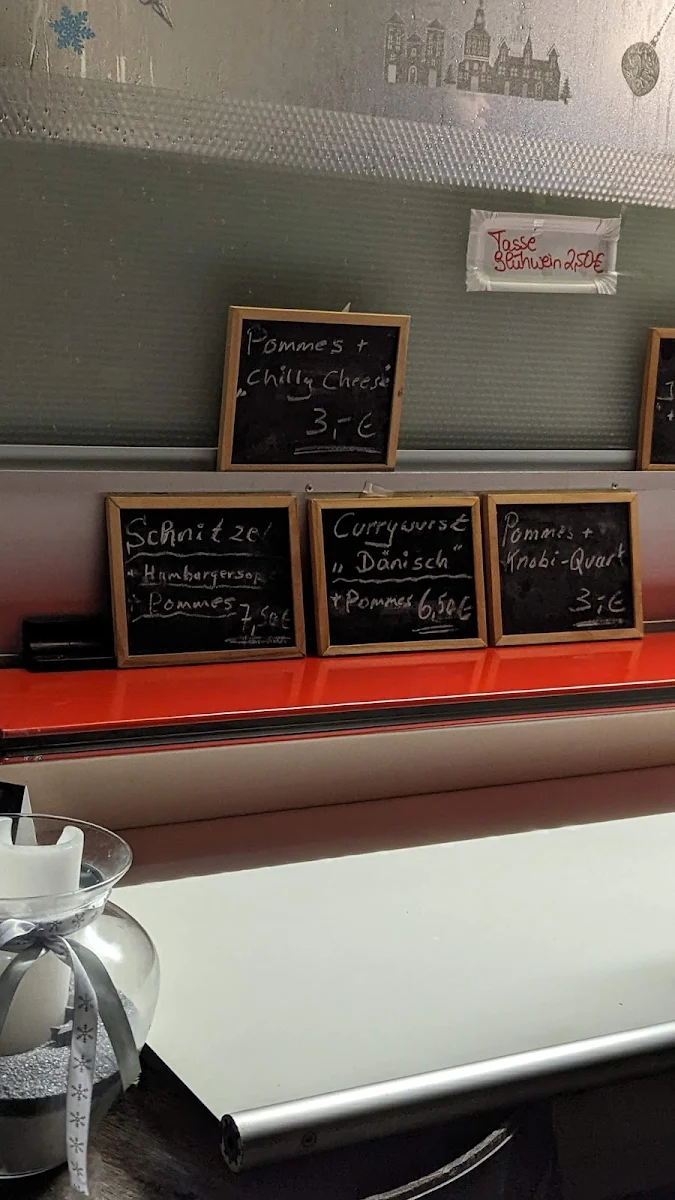 Tasse
Glühwein 2,50€
Pommes +
„Chilly Cheese"
3,-€
Schnitzel
+ Hamburgersoße
+ Pommes
7,50€
Currywurst
„Dänisch"
+Pommes 6,50€
Pommes +
Knobi-Quark
3,-€